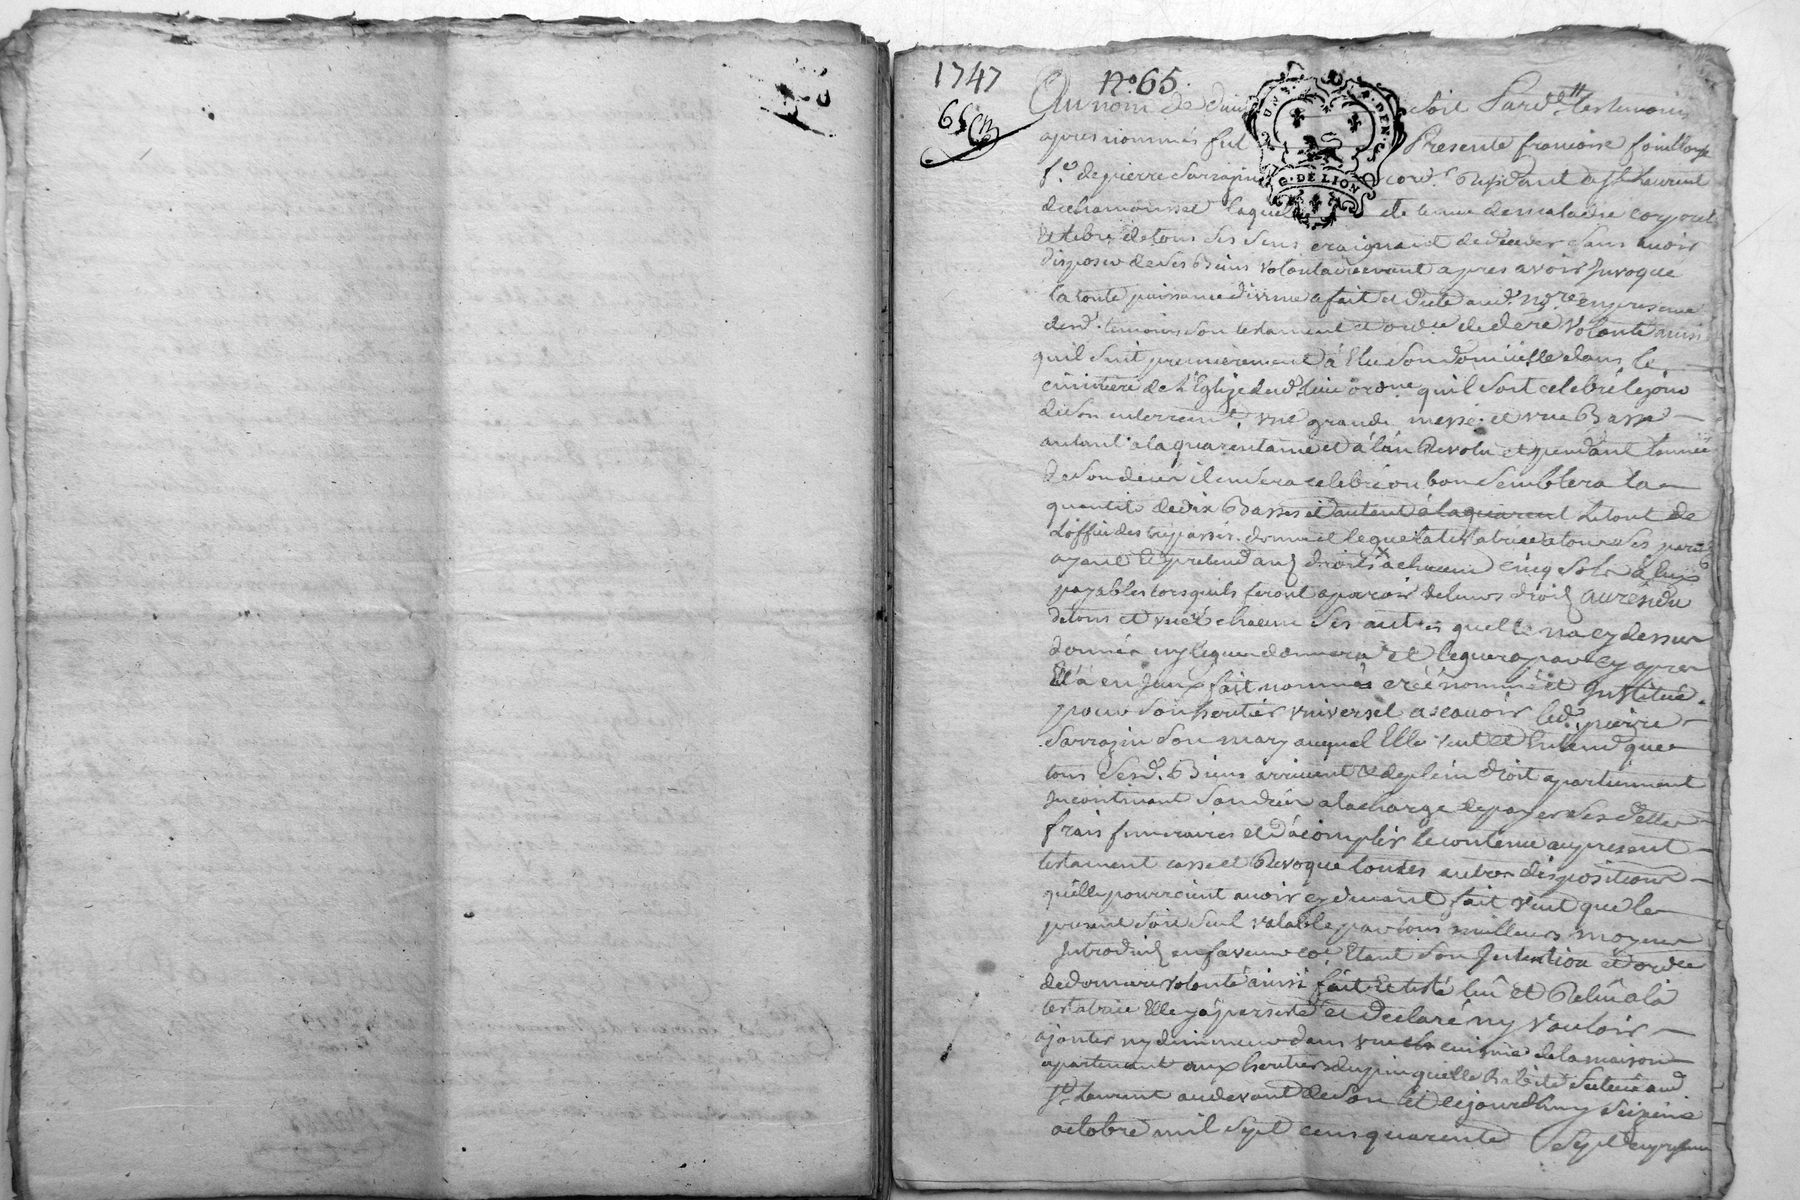 1747 nº 65.
65
Au nom de dieu soit Pard.tt tesmoins
apres nommés fut Presente francoise fouilloux
f.e de pierre Sarrazin cord.r Residant a St Laurent
de chamousset laquelle detenue de maladie corporel
Et libre de tous ses sens craignant de deceder sans avoir
disposer de ses Biens volontairement apres avoir Invoque
la toute puissance divine a fait et dicté aud. no.re en presence
desd. temoins son testament et ordre de dere volonté ainsi
quil suit premierement à Elu son domicille dans le
cimitiere de L'Eglize dud. lieu ordne quil soit celebré le jour
de son enterremt. une grande messe et une Basse
autant a la quarentaine et à l'an Revolu et pendant lannée
de son decés il en sera celebré ou bon semblera la
quantité de dix Basses et autant à la quarent le tout de
Loffice des trepassés. donne et legue la testatrice a tous ses parents
ayant et pretendants droits a chacun cinq sols à Eux
payables lorsquils feront aparoir de leurs droits au residu
de tous et uns chacuns ses autres quelle na cy dessus
donnés ny legués donnera et leguera par cy apres
Et à en Iceux fait nommé creé nommé et Institué
pour son heritier universel ascavoir led. pierre
Sarrazin son mary auquel Elle veut et Entend que
tous sesd. Biens arrivent & de plein droit apartiennent
Incontinant son decés a la charge de payer ses dettes
frais funeraires et d'acomplir le contenu au present
testament casse et Revoque toutes autres dispositions
quelle pourroient avoir cy devant fait veut que le
present soit seul valable par tous meilleurs moyens
Introduits en faveur Etant son Intention et ordre
de derniere volonté ainsi fait Et testé lû et Relu a la
testatrice Elle y à persisté et declaré ny vouloir
ajouter ny diminuer dans une cuisine de la maison
apartenant aux heritiers dupin quelle habite scituée aud
St Laurent au devant de son Et le jourdhuy seizieme
octobre mil sept cens quarente sept en presence
G. DE LION